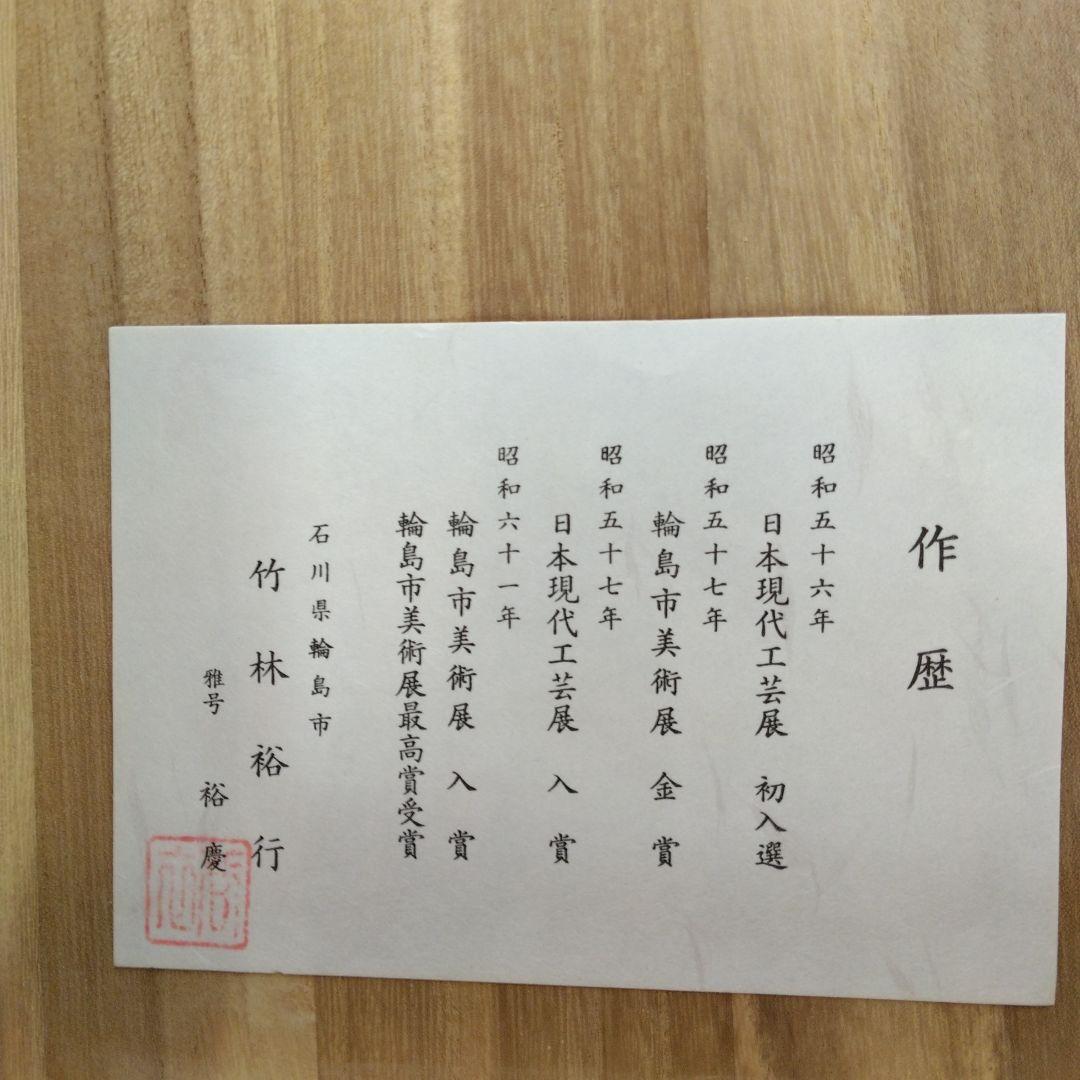 作歴
昭和五十六年
日本現代工芸展 初入選
昭和五十七年
輪島市美術展 金賞
昭和五十七年
日本現代工芸展 入賞
昭和六十一年
輪島市美術展 入賞
輪島市美術展最高賞受賞
石川県輪島市
竹林裕行
雅号 裕慶